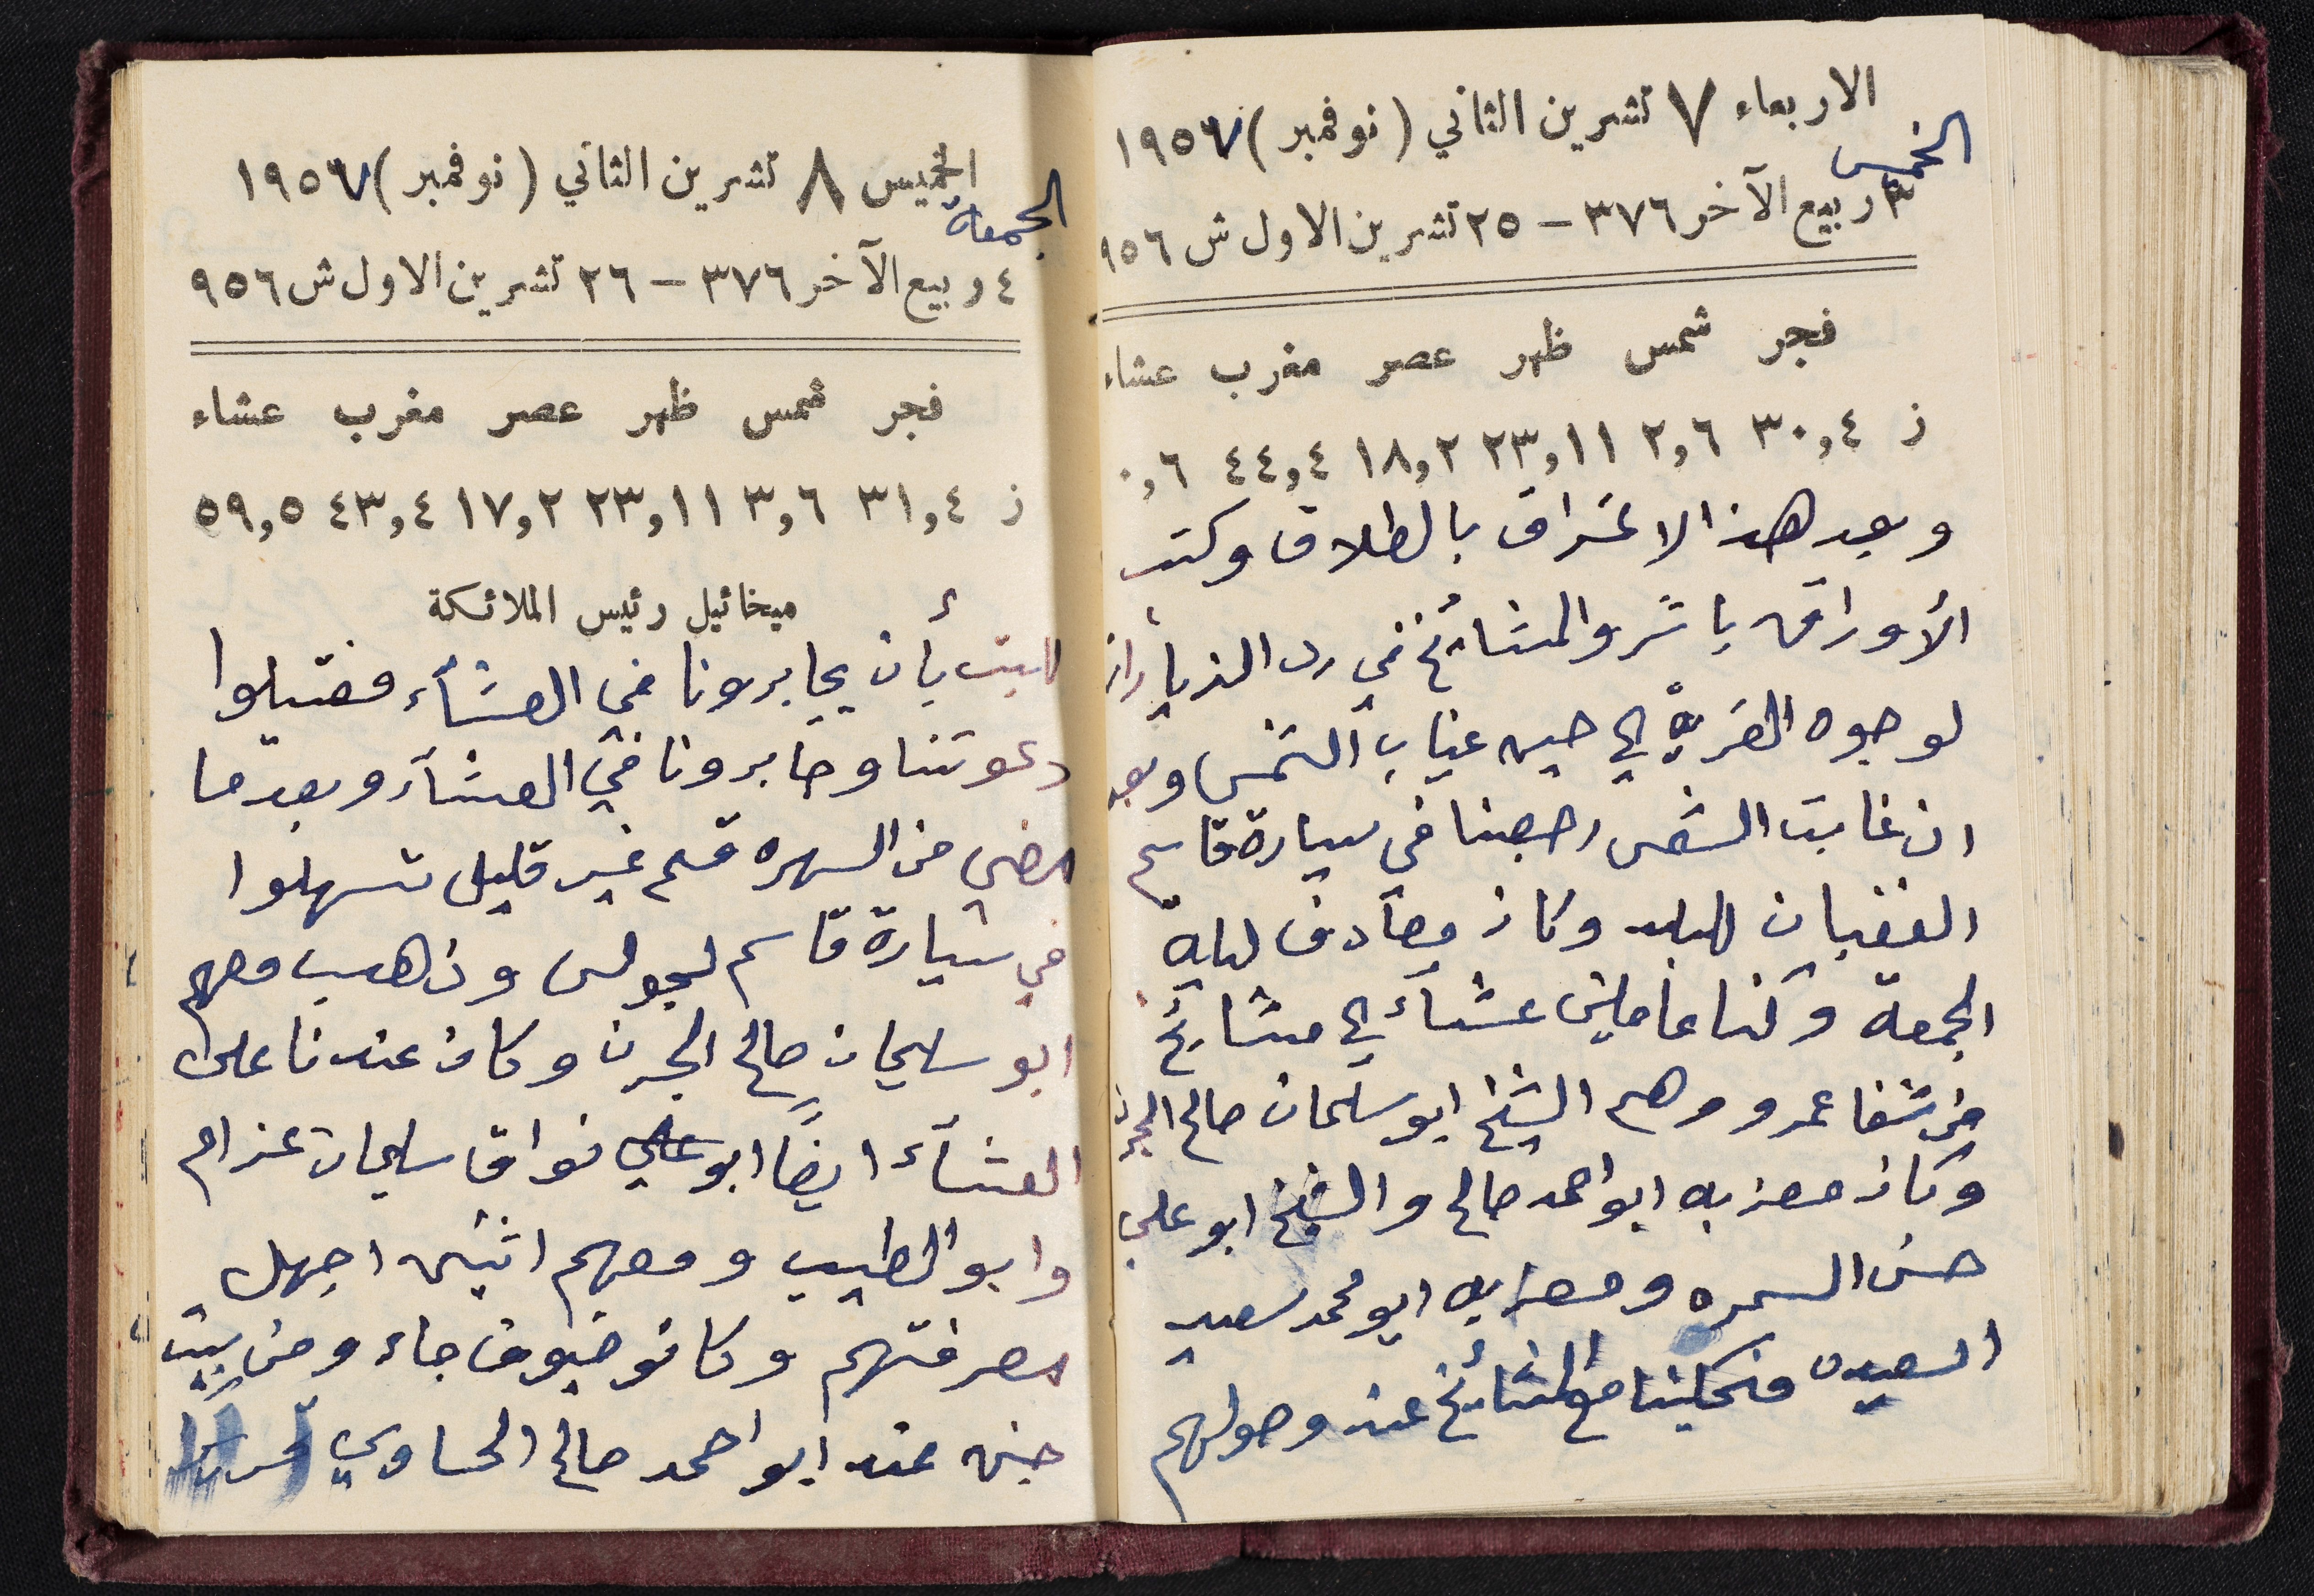 الاربعاء ٧ تشرين الثاني (نوفمبر) ١٩٥٧
الخميس
٣ ربيع الآخر ٣٧٦ – ٢٥ تشرين الاول ش ٩٥٦
فجر شمس ظهر عصر مغرب عشاء
ز ٣٠,٤ ٢,٦ ٢٣,١١ ١٨,٢ ٤٤,٤ ٠,٦
وبعد هذا الاعتراف بالطلاق وكتب
الأوراق باشروا المشائخ في رد الزيارات
لوجوه القريه الى حين غياب الشمس وبعد
ان غابت الشمس رجعنا في سيارة قاسم
الغضبان للبلد وكان مصادف ليلة
الجمعة وكنا عاملين عشاء الى مشايخ
من شفا عمرو وهم الشيخ ابو سليمان صالح الجرن
وكان معزبه ابو احمد صالح والشيخ ابو علي
حسن السمره ومعزبه ابو محمد سعيد
السعيد فتحكينا مع المشائخ عند وصولهم
الخميس ٨ تشرين الثاني (نوفمبر) ١٩٥٧
الجمعة
٤ ربيع الآخر ٣٧٦ – ٢٦ تشرين الاول ش ٩٥٦
فجر شمس ظهر عصر مغرب عشاء
ز ٣١,٤ ٣,٦ ٢٣,١١ ١٧,٢ ٤٣,٤ ٥٩,٥
ميخائيل رئيس الملائكة
للبيت بأن يجابرونا في العشاء فقبلوا
دعوتنا وجابرونا في العشاء وبعدما
مضى من السهره قسم غير قليل تسهلوا
في سيارة قاسم لجولس وذهب معهم
ابو سليمان صالح الجرن وكان عندنا على
العشاء ايضًا ابو علي نواف سليمان عزام
وابو الطيب ومعهم اثنين اجهل
معرفتهم وكانو ضيوف جاءو من بيت
جن عند ابو احمد صالح الحساوي